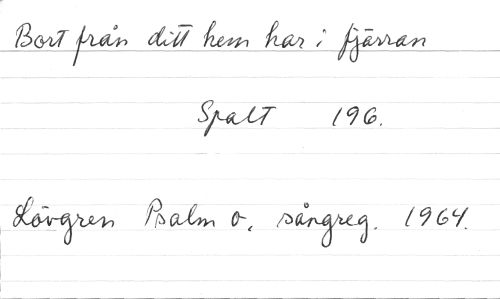 Bort från ditt hem har i fjärran
Spalt 196.
Lövgren Psalm o. sångreg. 1964.